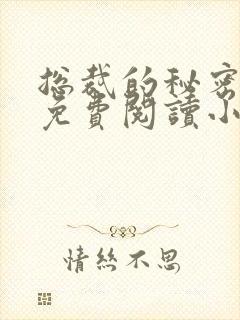 总裁的秘密
免費閱讀小
情絲不思